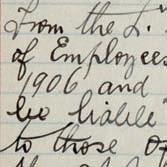 From the L.
of Employees
1906 and
be liable
to those